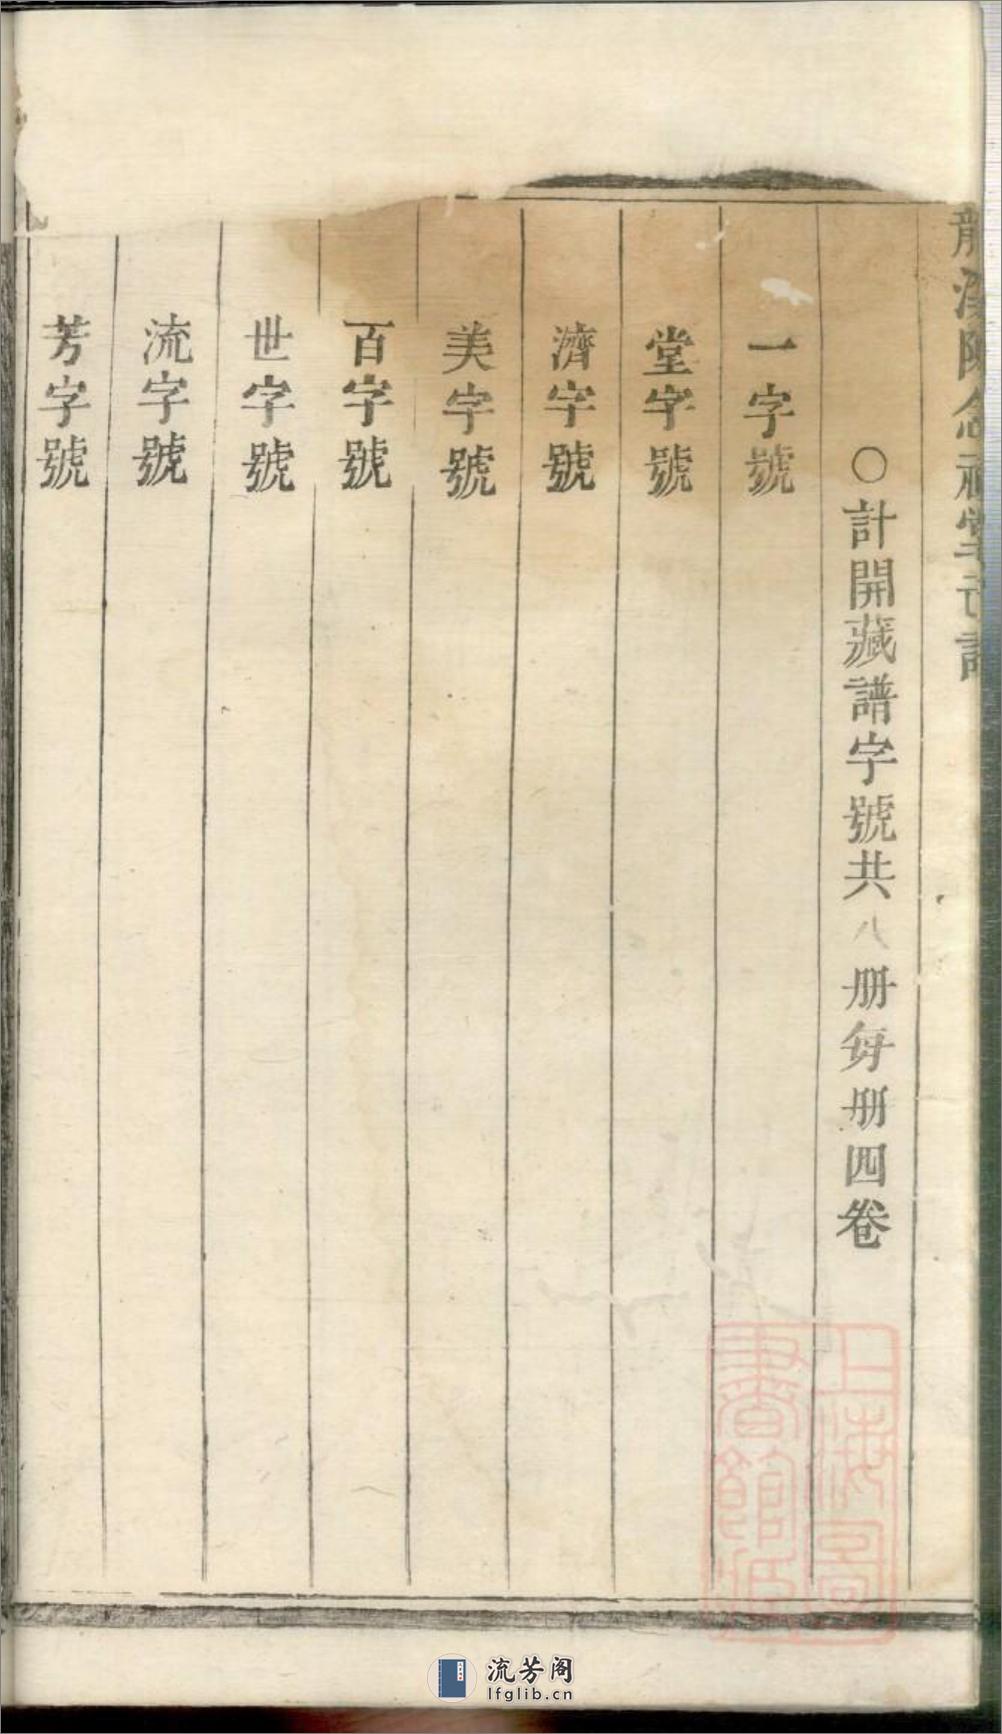 龍溪陳念祖堂世譜
○計開藏譜字號共八册每册四卷
一字號
堂字號
濟字號
美字號
百字號
世字號
流字號
芳字號
上海圖
書館藏
流芳阁
lfglib.cn